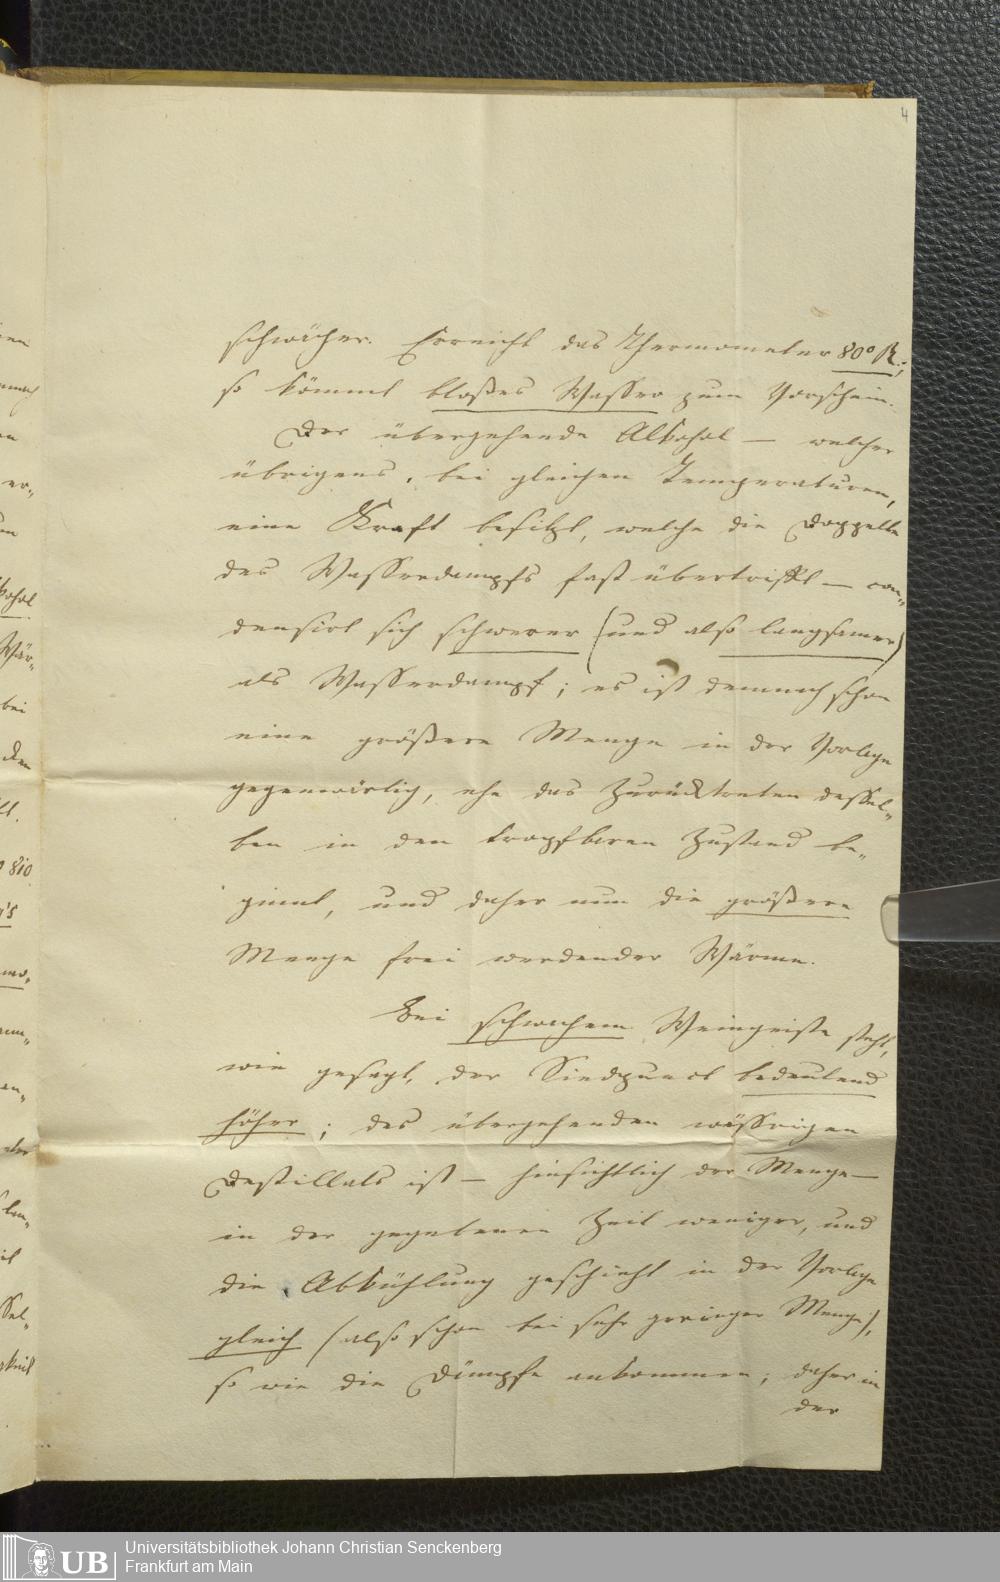 4
schwächer. Erreicht das Thermometer 80° R.,
so kömmt bloßes Wasser zum Vorschein.
Der übergehende Alkohol — welcher
übrigens, bei gleichen Temperaturen,
eine Kraft besitzt, welche die doppelte
des Wasserdampfs fast übertrifft — con„
densirt sich schwerer (und also langsamer)
als Wasserdampf; es ist demnach schon
eine größere Menge in der Vorlage
gegenwärtig, ehe das Zurücktreten dessel„
ben in den tropfbaren Zustand be„
ginnt, und daher nun die größere
Menge frei werdender Wärme.
Bei schwachem Weingeiste steht,
wie gesagt, der Siedpunct bedeutend
höher; des übergehenden wässrigen
Destillats ist — hinsichtlich der Menge —
in der gegebenen Zeit weniger, und
die Abkühlung geschieht in der Vorlage
gleich (also schon bei sehr geringer Menge),
so wie die Dämpfe ankommen; daher in
der
UB
Universitätsbibliothek Johann Christian Senckenberg
Frankfurt am Main